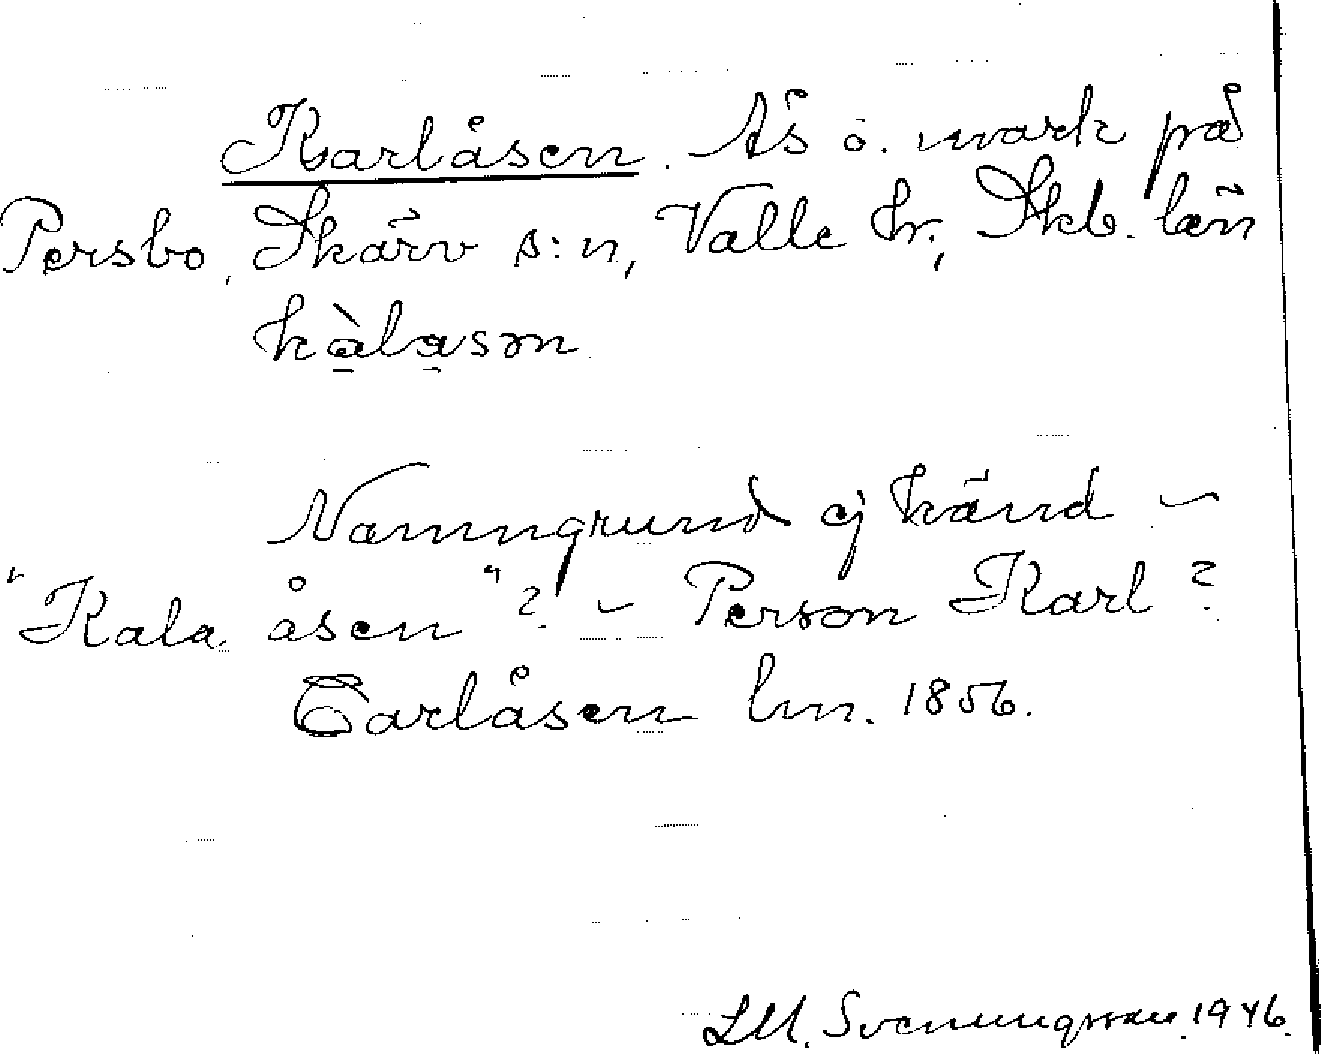 Karlåsen. Ås o. mark på
Persbo, Skärv s:n, Valle hr, Skb. län
kàlasən
Namngrund ej känd –
"Kala åsen"? – Person Karl?
Carlåsen lm. 1856.
LM. Svenungsson 1946.